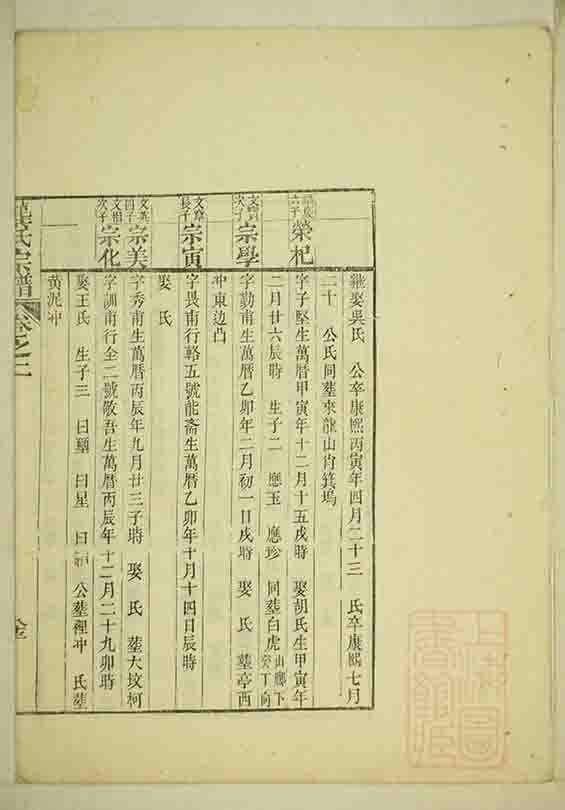 繼娶吳氏 公卒康熙丙寅年四月二十三 氏卒康熙七月
二十 公氏同葬來龍山肖箕塢
六子
榮杞
字子堅生萬曆甲寅年十二月十五戌時 娶胡氏生甲寅年
二月廿六辰時 生子二 應玉 應珍 同葬白虎山鄉下癸丁向
次子
宗學
字勤甫生萬曆乙卯年二月初一日戌時 娶 氏 葬亭西
冲東边凸
文章長子
宗寅
字畏甫行輅五號能斋生萬曆乙卯年十月十四日辰時
娶 氏
文英四子
宗美
字秀甫生萬曆丙辰年九月廿三子時 娶 氏 葬大坟柯
文相次子
宗化
字訓甫行全二號敬吾生萬曆丙辰年十二月二十九卯時
娶王氏 生子三 曰璽 曰星 曰 公葬裡冲 氏葬
黄泥冲
氏宗譜 卷之二
上海圖書館藏